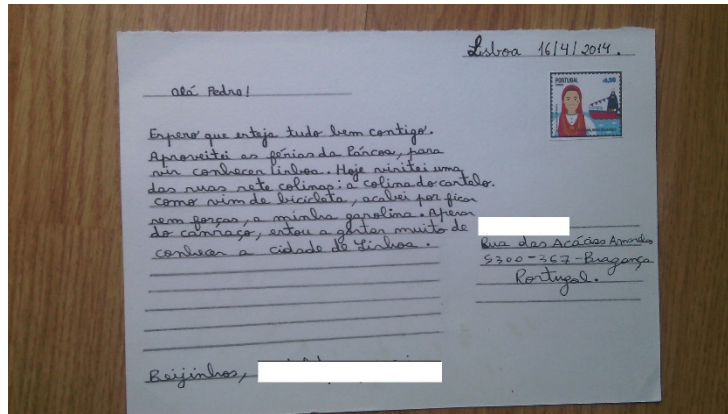 Lisboa 16/4/2014.
PORTUGAL
Olá Pedro!
Espero que esteja tudo bem contigo.
Aproveitei as férias da Páscoa, para
vir conhecer Lisboa. Hoje visitei uma
das suas sete colinas: a colina do castelo.
como vim de bicicleta, acabei por ficar
sem forças, a minha gasolina. Apesar
do cansaço, estou a gostar muito de
conhecer a cidade de Lisboa.
Rua das Acácias
5300-367-Bragança
Portugal.
Beijinhos,